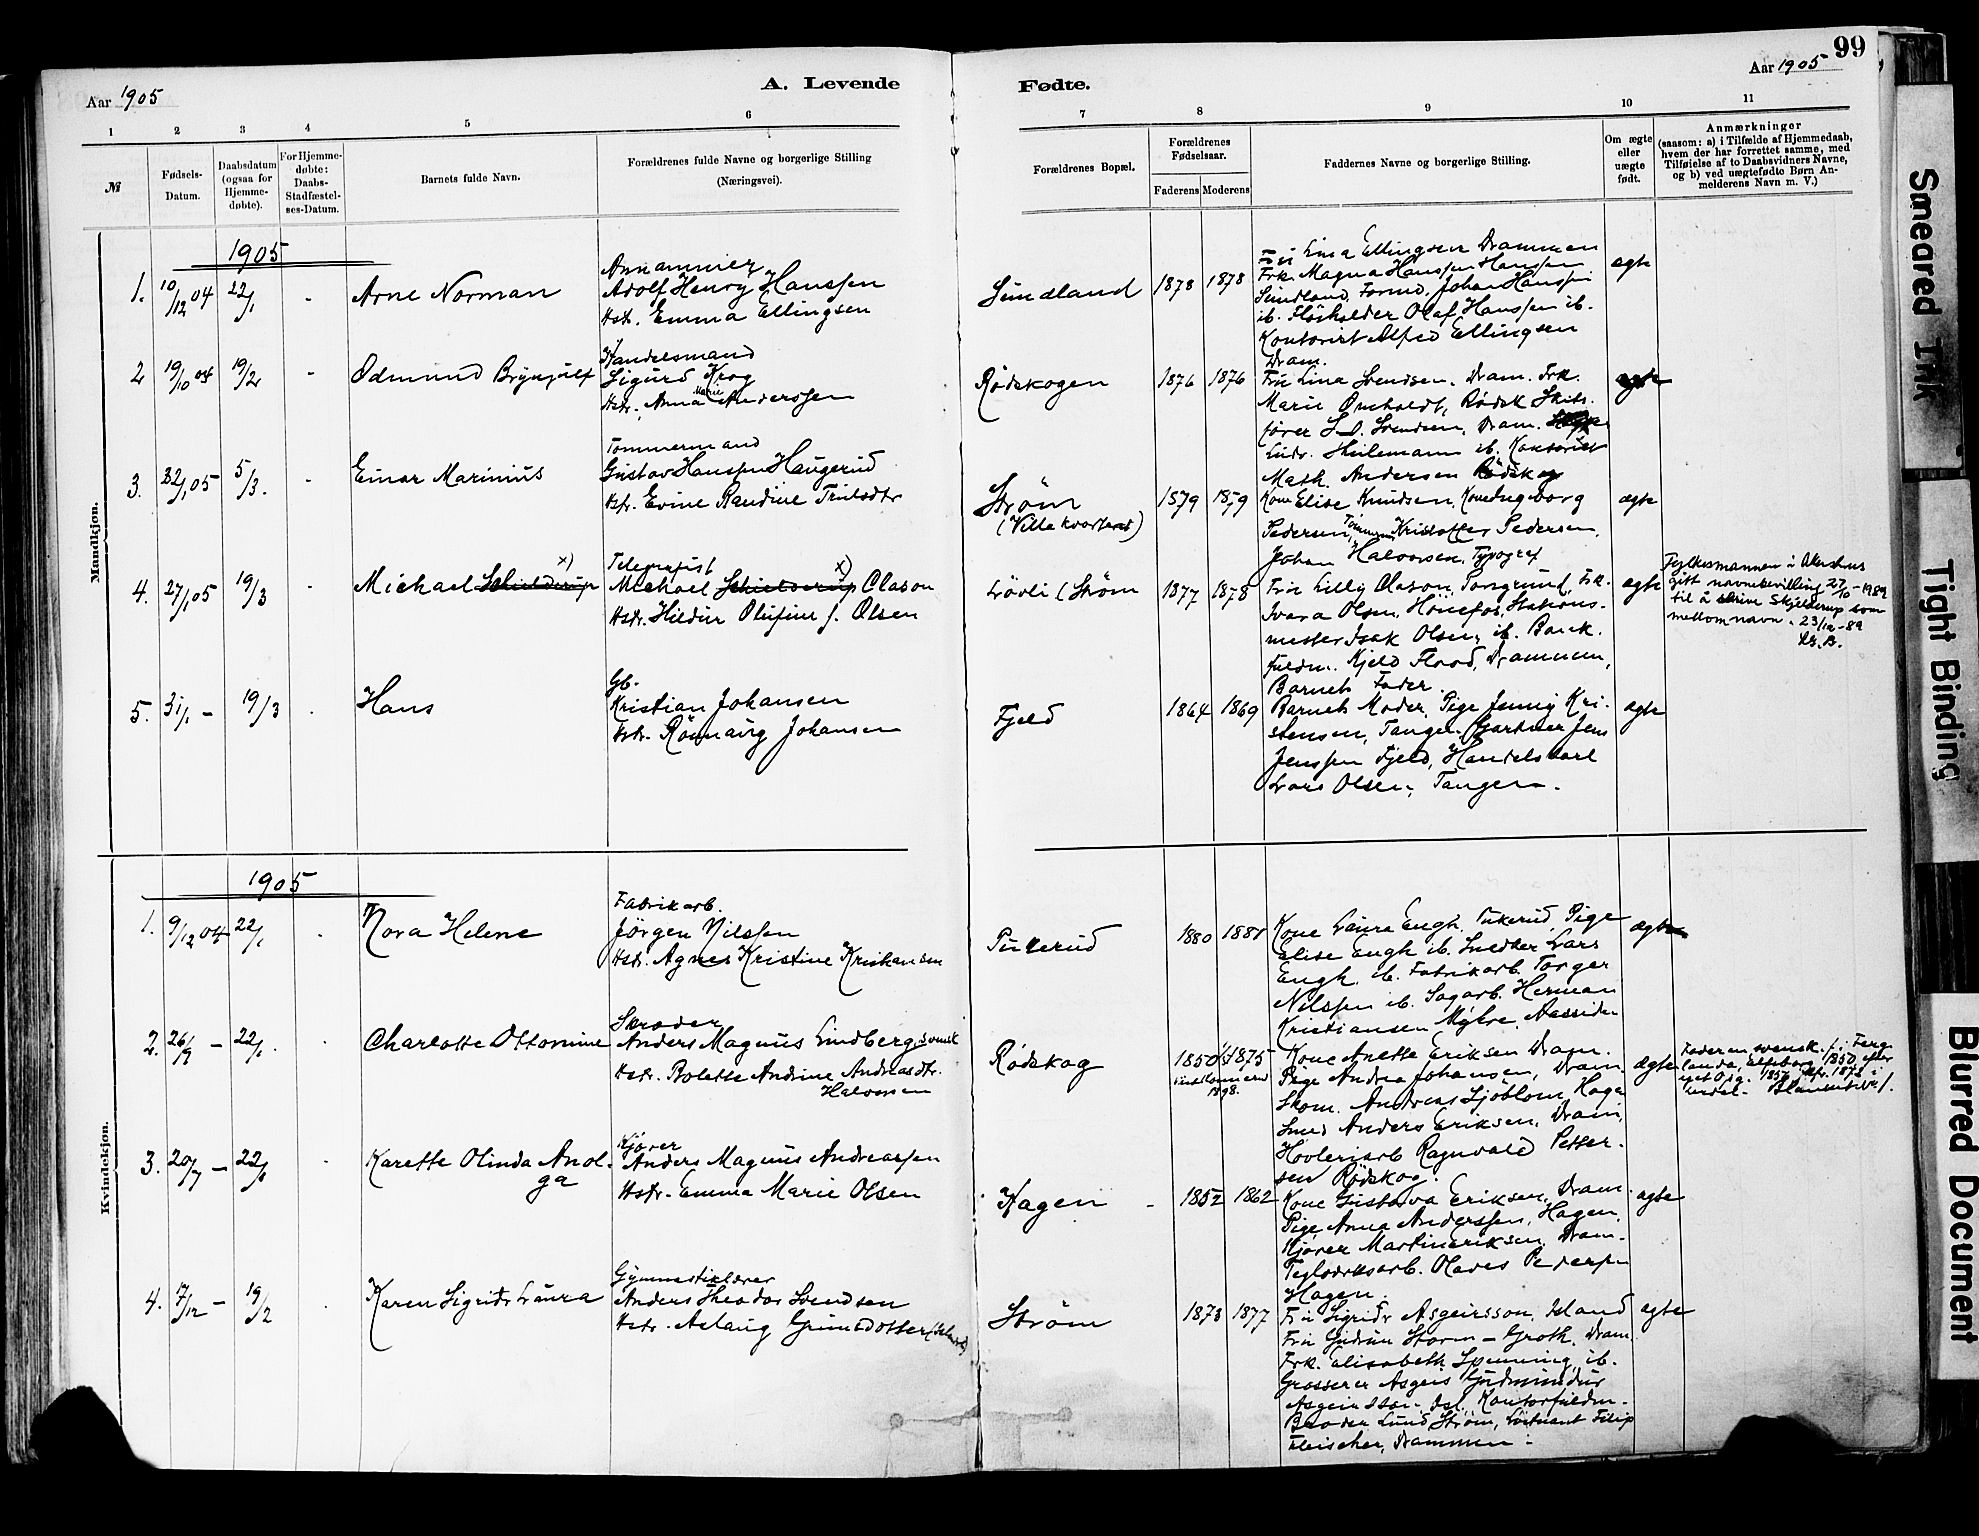 99
Aar 1905
A. Levende
Fødte.
Aar 1905
1 2 3 4 5 6 7 8 9 10 11
№
Fødsels-
Datum.
Daabsdatum
(ogsaa for
Hjemme-
døbte).
For Hjemme-
døbte:
Daabs-
Stadfæstel-
ses-Datum.
Barnets fulde Navn.
Forældrenes fulde Navne og borgerlige Stilling
(Næringsvei).
Forældrenes Bopæl.
Forældrenes
Fødselsaar.
Faderens Moderens
Faddernes Navne og borgerlige Stilling.
Om ægte
eller
uægte
født.
Anmærkninger
(saasom: a) i Tilfælde af Hjemmedaab,
hvem der har forrettet samme, med
Tilføielse af to Daabsvidners Navne,
og b) ved uægtefødte Børn An-
melderens Navn m. V.)
Mandkjøn.
1905
1. 10/12 04 22/1 - Arne Norman
Adolf Henry Hanssen
Hstr. Emma Ellingsen
Sundland 1878 1878
Fru Lina Ellingsen Drammen
Frk. Magna Hanssen Hanssen
Sundland, Johan Hanssen
ib. Olaf Hanssen ib.
Kontorist Alfred Ellingsen
Dram.
ægte
2 19/10 04 19/2 - Odmund Brynjulf
Handelsmand
Sigurd Krog
Hstr. Anna Marie Anderssen
Rødskogen 1876 1876
Fru Lina Svendsen, Dram. Frk.
Marie Omholdt, Rødsk Skibs-
fører S. D. Svendsen, Dram.
ib. Kontorist
Math. Andersen Rødskog
ægte
3. 22/1 05 5/3. - Einar Marinius
Tømmermand
Gustav Hanssen Haugerud
Hstr. Evine Randine
Strøm
(Villa kvarteret)
1879 1859
Kone Elise Knudsen, Kone Ingeborg
Pedersen, Tømmerm. Kristoffer Pedersen,
Johan Halvorsen, Typograf
ægte
4. 27/1 05 19/3 - Michael Schielderup x)
Telegrafist
Michael Schielderup x) Clason
Hstr. Hildur Olufine f. Olsen
Løvli (Strøm 1877 1878
Fru Lilly Clason, Porsgrund, Frk.
Ivara Olsen, Hönefos, Stations-
mester Isak Olsen, ib. Bank-
fuldm. Kjeld Flood, Drammen,
Barnets Fader.
ægte
Fylkesmannen i Akershus
gitt navnebevilling 27/10-1989
til å skrive Skjelderup som
mellomnavn. 23/10-89
5. 31/1 - 19/3 . Hans
Gb.
Kristian Johansen
Hstr. Rönnaug Johansen
Fjeld 1864 1869
Barnets Moder, Pige Jenny Kri-
stensen, Tangen. Gartner Jens
Jenssen Fjeld, Handelskarl
Lars Olsen, Tangen.
ægte
Kvindekjøn.
1905
1. 9/12 04 22/1 . Nora Helene
Fabrikarb.
Jörgen Nilssen
Hstr. Agnes Kristine Kristiansen
Pukerud 1880 1881
Kone Laura Engh, Pukerud, Pige
Elise Engh ib. Snedker Lars
Engh. ib. Fabrikarb. Torger
Nilssen ib. Sagarb. Herman
Kristiansen Myhre, Aassiden
ægte
2. 26/9 - 22/1 . Charlotte Ottomine
Skræder
Anders Magnus Lindberg, svensk
Hstr. Rolette Andrine Andreasdtr.
Halvorsen
Rødskog 1850 1875
1898.
Kone Anette Eriksen Dram.
Pige Andrea Johansen, Dram
Skom. Andreas Sjöblom, Hage
Smed Anders Eriksen, Dram,
Høvleriarb Ragnvald Petter-
sen Rødskog.
ægte
Faderen svensk.
3. 20/7 - 22/1 . Karette Olinda Anol-
ga
Kjører
Anders Magnus Andreassen
Hstr. Emma Marie Olsen
Hagen 1852 1862
Kone Gustava Eriksen, Dram.
Pige Anna Anderssen, Hagen,
Kjører Martin Eriksen, Dram.
Teglværksarb. Olaves Pederssen
Hagen.
ægte
4. 7/12 - 19/2 . Karen Sigridr Laura
Gymnastiklærer
Anders Theodor Svendsen
Hstr. Aslaug Grimsdotter (Island)
Strøm 1873 1877
Fru Sigridr Asgeirsson, Island
Fru Gudrun Storm-Groth, Dram
Frk. Elisabeth Spenning, ib.
Grosserer Asgeir Gudmundur
Asgeirsson, Isl., Kontorfuldm.
Broder Lund Strøm, Löitnant Filip
Fleischer, Drammen.
ægte
Smeared Ink
Tight Binding
Blurred Document